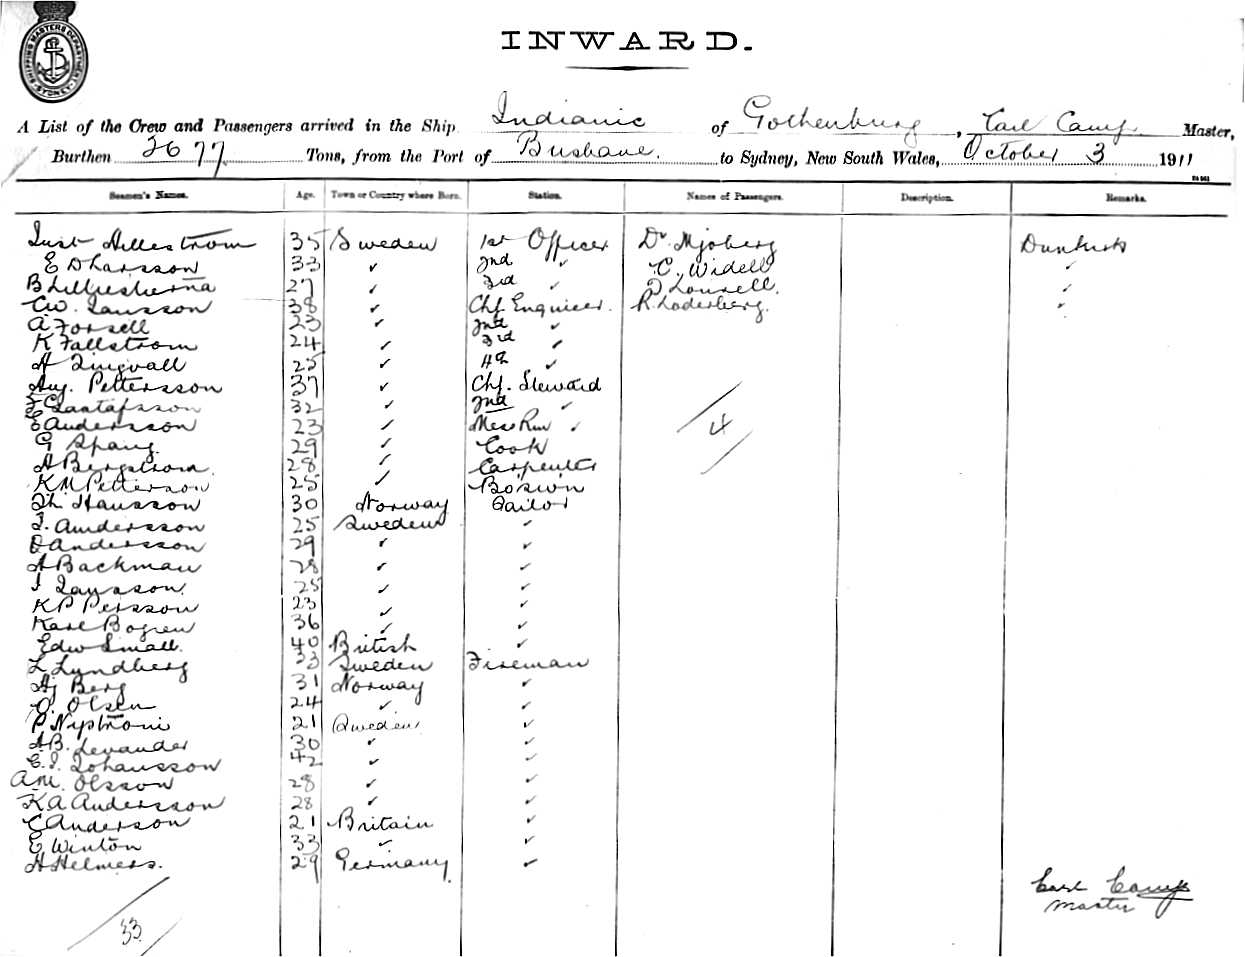 SHIPPING MASTERS DEPARTMENT SYDNEY
INWARD.
A List of the Crew and Passengers arrived in the Ship Indianic of Gothenburg, Carl Camp Master,
Burthen 3677 Tons, from the Port of Brisbane. to Sydney, New South Wales, October 3 1911
Seamen's Names. Age. Town or Country where Born. Station. Names of Passengers. Description. Remarks.
Hillestrom 35 Sweden 1st Officer Dr. Mjoberg Dunkirk
E 33 ✓ 2nd ✓ C. Widell ✓
B 27 ✓ 3rd ✓ ✓
38 ✓ Chf Engineer. R. Soderberg. ✓
A. Forsell 23 ✓ 2nd ✓
K Fallstrom 24 ✓ 3rd ✓
A Ljungvall 25 ✓ 4th ✓
Aug. Pettersson 37 ✓ Chf. Steward
Gustafsson 32 ✓ 2nd ✓
E Andersson 23 ✓ Mess Rm ✓ 4
G Spang. 29 ✓ Cook
A Bergstrom. 28 ✓ Carpenter
K M Petterson 25 ✓ Boswin
Th. Hansson 30 Norway Sailor
Andersson 25 Sweden ✓
O Andersson 29 ✓ ✓
A Backman 28 ✓ ✓
Jansson. 25 ✓ ✓
K P Persson 23 ✓ ✓
Karl Bogren 36 ✓ ✓
Edw Small. 40 British ✓
L Lundberg 33 Sweden Fireman
Hj Berg 31 Norway ✓
O. Olsen 24 ✓ ✓
P. Nystrom 21 Sweden ✓
A. B. Levander 30 ✓ ✓
C. J. Johansson 42 ✓ ✓
A. M. Olsson 28 ✓ ✓
K A Andersson 28 ✓ ✓
C Anderson 21 Britain ✓
E Winton 33 ✓ ✓
H Helmers. 29 Germany. ✓
Carl Camp
Master
33